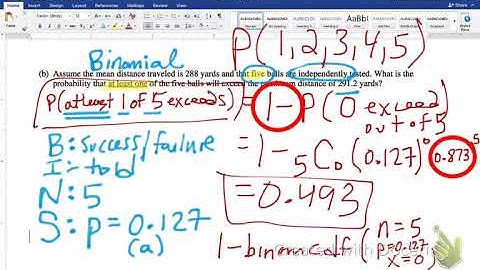 Binomial
P(1,2,3,4,5)
(b) Assume the mean distance traveled is 288 yards and that five balls are independently tested. What is the
probability that at least one of the five balls will exceed the maximum distance of 291.2 yards?
P(atleast 1 of 5 exceeds) = 1 - P(0 exceed
out of 5
B: success/failure
= 1 - 5C0 (0.127)^0 0.873^5
I: told
N: 5
= 0.493
S: p = 0.127
(a)
1-binomcdf(n=5
p=0.127
x=0)